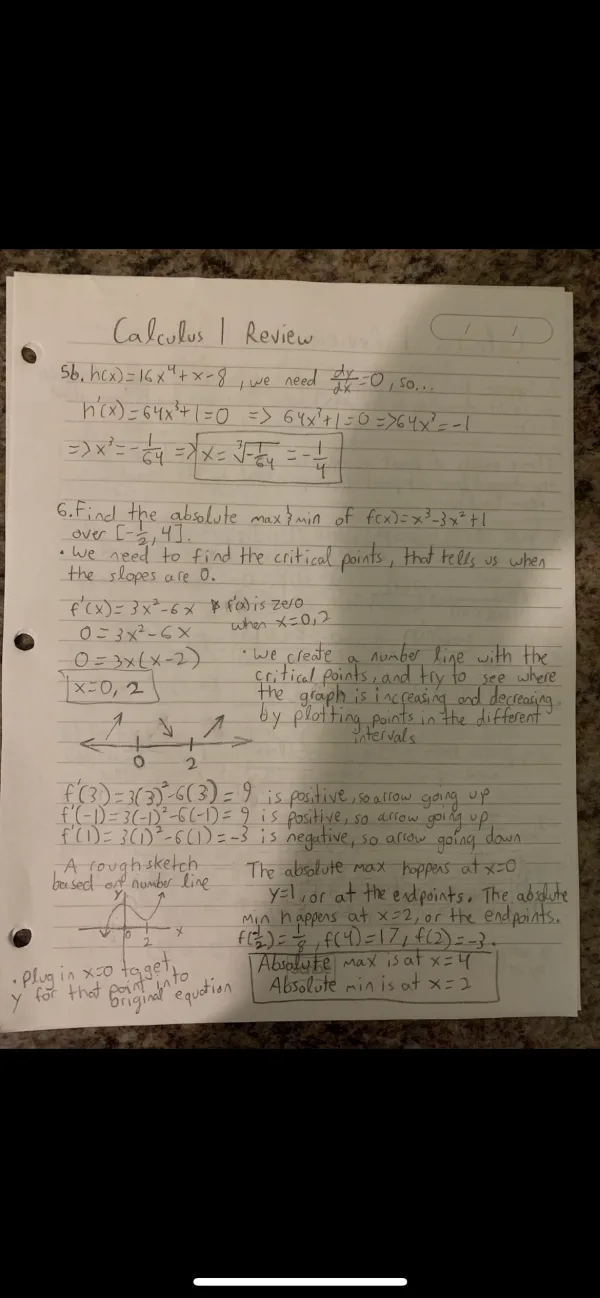 Calculus 1 Review
/ /
5b. h(x)=16x⁴+x-8, we need dy/dx=0, so...
h'(x)=64x³+1=0 => 64x³+1=0 =>64x³=-1
=>x³=-1/64 => x=∛-1/64 = -1/4
6. Find the absolute max & min of f(x)=x³-3x²+1
over [-1/2, 4].
• We need to find the critical points, that tells us when
the slopes are 0.
f'(x)=3x²-6x * f'(x) is zero
when x=0,2
0=3x²-6x
0=3x(x-2)
x=0, 2
• We create a number line with the
critical points, and try to see where
the graph is increasing and decreasing.
by plotting points in the different
intervals
0 2
f'(3)=3(3)²-6(3)=9 is positive, so arrow going up
f'(-1)=3(-1)²-6(-1)=9 is positive, so arrow going up
f'(1)=3(1)²-6(1)=-3 is negative, so arrow going down
A rough sketch
based off number line
y
0 2 x
• Plug in x=0 to get
y for that point into
original equation
The absolute max happens at x=0
y=1, or at the endpoints. The absolute
min happens at x=2, or the endpoints.
f(-1/2)=1/8, f(4)=17, f(2)=-3.
Absolute max is at x=4
Absolute min is at x=2